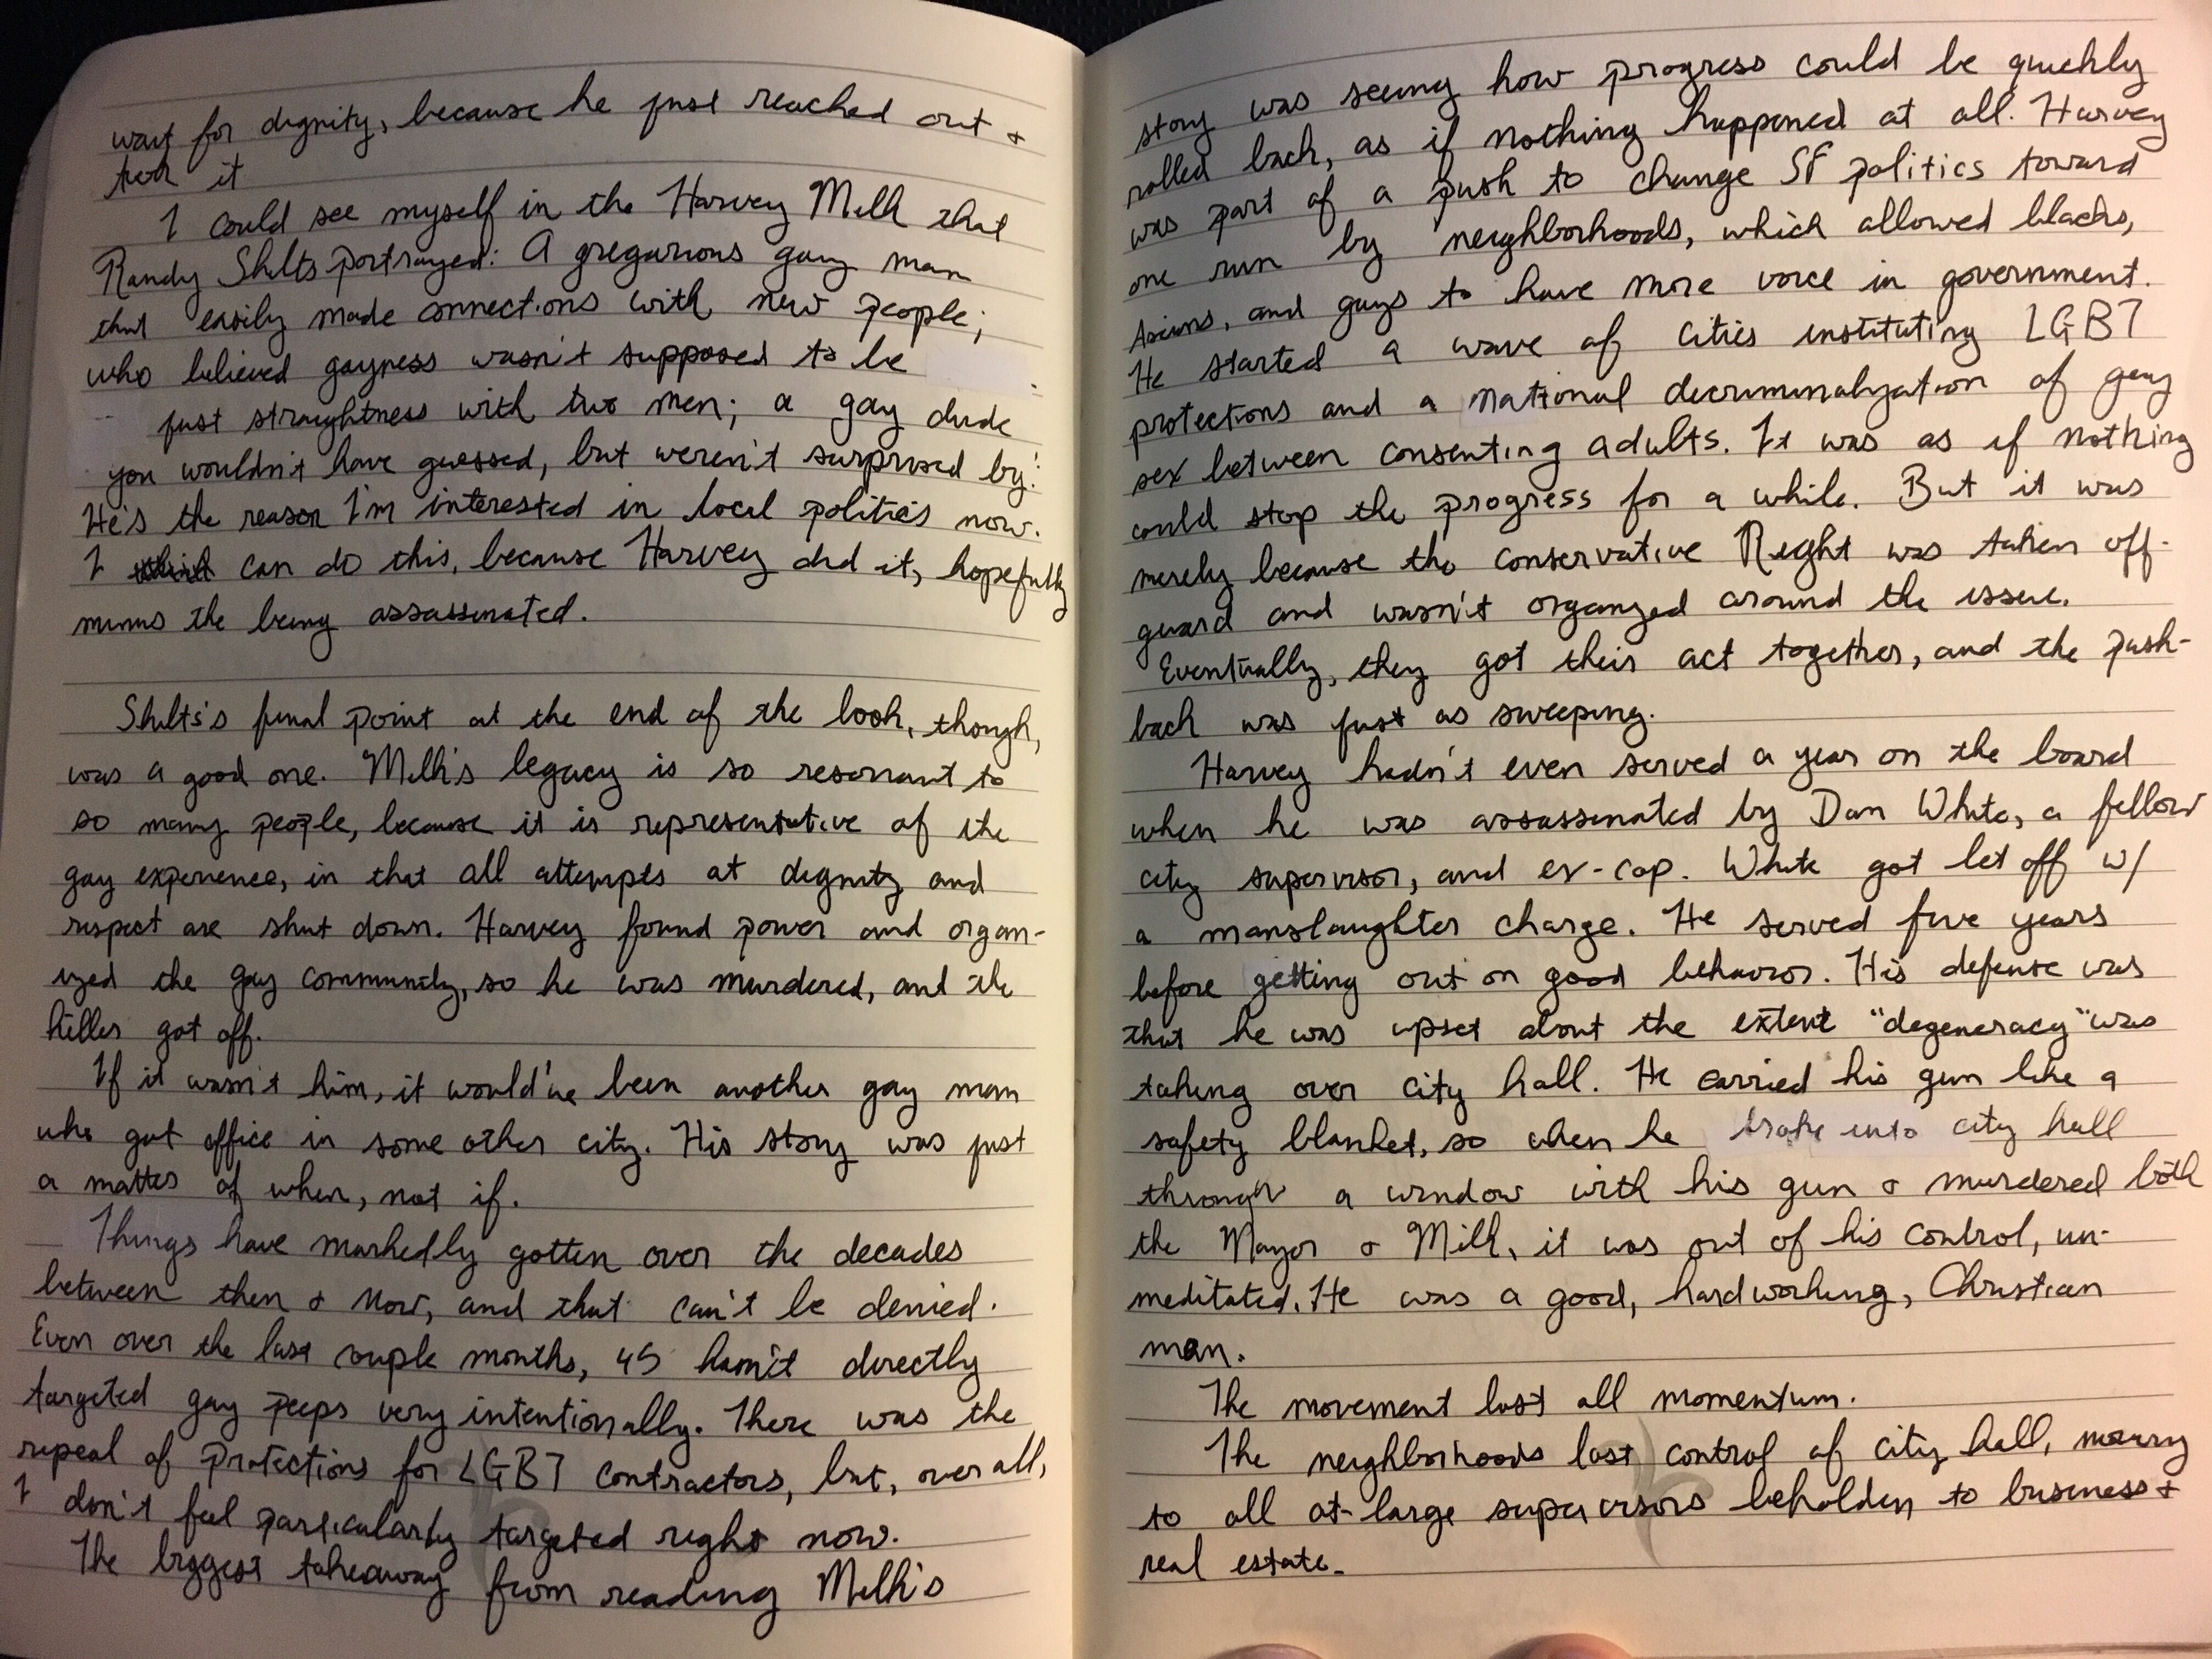 wait for dignity, because he just reached out &
took it
I could see myself in the Harvey Milk that
Randy Shilts portrayed: A gregarious gay man
that easily made connections with new people;
who believed gayness wasn't supposed to be
just straightness with two men; a gay dude
you wouldn't have guessed, but weren't surprised by.
He's the reason I'm interested in local politics now.
I can do this, because Harvey did it, hopefully
minus the being assassinated.
Shilts's final point at the end of the book, though,
was a good one. Milk's legacy is so resonant to
so many people, because it is representative of the
gay experience, in that all attempts at dignity and
respect are shut down. Harvey found power and organ-
ized the gay community, so he was murdered, and the
killer got off.
If it wasn't him, it would've been another gay man
who got office in some other city. His story was just
a matter of when, not if.
Things have markedly gotten over the decades
between then & now, and that can't be denied.
Even over the last couple months, 45 hasn't directly
targeted gay peeps very intentionally. There was the
repeal of protections for LGBT contractors, but, overall,
I don't feel particularly targeted right now.
The biggest takeaway from reading Milk's
story was seeing how progress could be quickly
rolled back, as if nothing happened at all. Harvey
was part of a push to change SF politics toward
one run by neighborhoods, which allowed blacks,
Asians, and gays to have more voice in government.
He started a wave of cities instituting LGBT
protections and a national decriminalization of gay
sex between consenting adults. It was as if nothing
could stop the progress for a while. But it was
merely because the conservative Right was taken off-
guard and wasn't organized around the issue.
Eventually, they got their act together, and the push-
back was just as sweeping.
Harvey hadn't even served a year on the board
when he was assassinated by Dan White, a fellow
city supervisor, and ex-cop. White got let off w/
a manslaughter charge. He served five years
before getting out on good behavior. His defense was
that he was upset about the extent "degeneracy" was
taking over city hall. He carried his gun like a
safety blanket, so when he broke into city hall
through a window with his gun & murdered both
the Mayor & Milk, it was out of his control, un-
meditated. He was a good, hardworking, Christian
man.
The movement lost all momentum.
The neighborhoods lost control of city hall, moving
to all at-large supervisors beholden to business &
real estate.